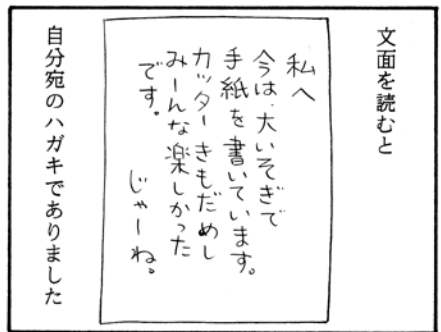 文面を読むと
私へ
今は、大いそぎで
手紙を書いています。
カッターきもだめし
みーんな楽しかった
です。
じゃーね。
自分宛のハガキでありました